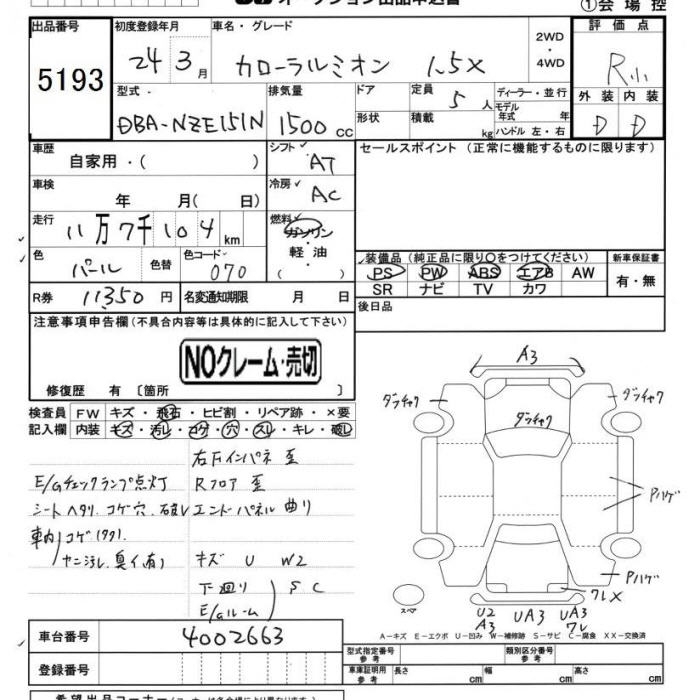 オークション出品申込書
①会場控
出品番号
5193
初度登録年月
24 3月
車名・グレード
カローラルミオン 1.5X
2WD
・
4WD
評価点
R小
外装 内装
D D
型式
DBA-NZE151N
排気量
1500 cc
ドア
形状
定員 5人
積載 kg
ディーラー・並行
モデル年式 年
ハンドル 左・右
車歴
自家用・( )
シフト
AT
セールスポイント (正常に機能するものに限ります)
車検
年 月( 日)
冷房
AC
走行
11万7千104 km
燃料
ガソリン
軽・油
( )
色
パール
色替
色コード
070
装備品(純正品に限り○をつけてください)
PS PW ABS エアB AW
SR ナビ TV カワ
新車保証書
有・無
R券 11350円
名変通知期限 月 日
後日品
注意事項申告欄(不具合内容等は具体的に記入して下さい)
NOクレーム・売切
修復歴 有 〔箇所 〕
検査員記入欄
FW キズ・飛石・ヒビ割・リペア跡・×要
内装 キズ・汚レ・コゲ・穴・スレ・キレ・破レ
右Fインパネ 歪
E/Gチェックランプ点灯 Rフロア 歪
シートヘタリ、コゲ穴、破レ エンドパネル 曲リ
車内 コゲ
ヤニ汚レ、臭イ有) キズ U W2
下廻リ
E/Gルーム) S C
A3
ダッチャク
ダッチャク
ダッチャク
Pハゲ
Pハゲ
ワレX
スペア
U2 A3
UA3
UA3 ワレ
A－キズ E－エクボ U－凹み W－補修跡 S－サビ C－腐食 XX－交換済
車台番号
4002663
登録番号
型式指定番号 参考
類別区分番号 参考
車庫証明用 参考
長さ cm
幅 cm
高さ cm
希望出品コーナー